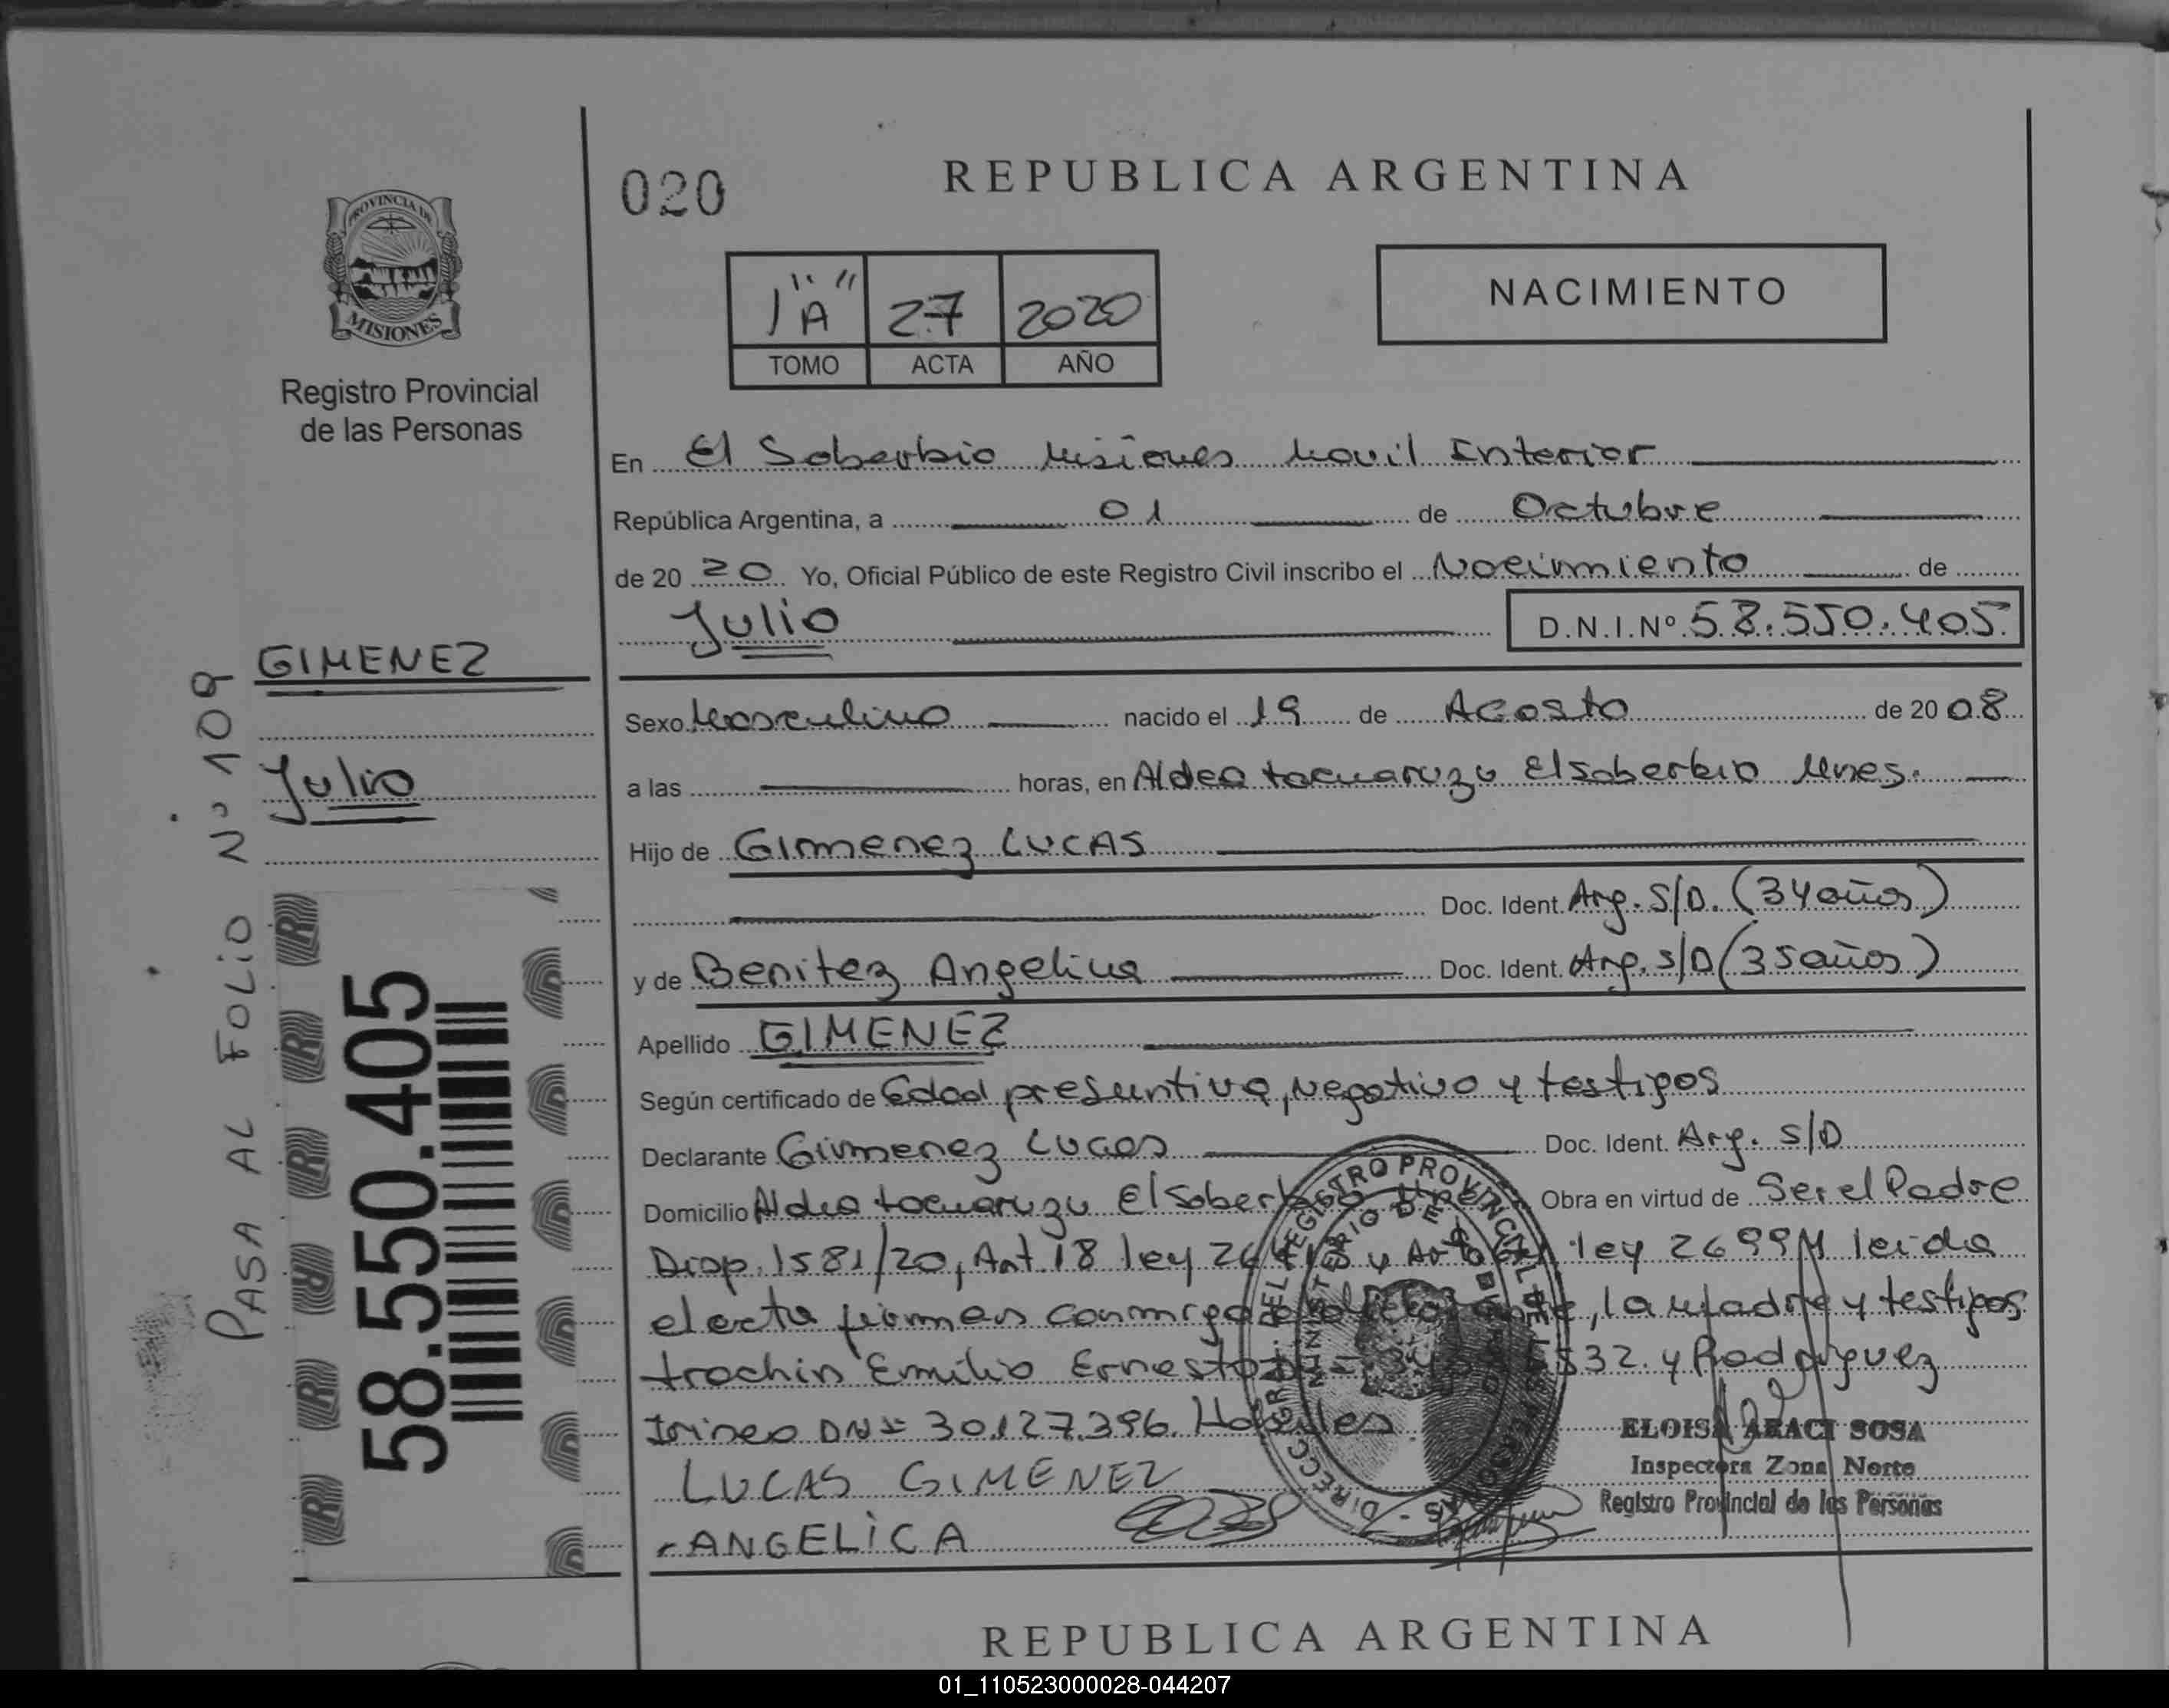 020
REPUBLICA ARGENTINA
PROVINCIA DE
MISIONES
Registro Provincial
de las Personas
1 "A" 27 2020
TOMO ACTA AÑO
NACIMIENTO
En El Soberbio Misiones Movil Interior
República Argentina, a 01 de Octubre
de 20 20 Yo, Oficial Público de este Registro Civil inscribo el Nacimiento de
Julio
D.N.I.Nº 58.550.405
GIMENEZ
Julio
PASA AL FOLIO Nº 109
58.550.405
Sexo Masculino nacido el 19 de Agosto de 20 08
a las horas, en Aldea tacuaruzu El soberbio Mnes.
Hijo de Gimenez LUCAS
Doc. Ident. Arg. S/D. (34 años)
y de Benitez Angelina Doc. Ident. Arg. S/D (35 años)
Apellido GIMENEZ
Según certificado de Edad presuntiva, Negativo y testigos
Declarante Gimenez Lucas Doc. Ident. Arg. S/D
Domicilio Aldea tacuaruzu El Soberbio Mnes Obra en virtud de Ser el Padre
Disp. 1581/20, Art 18 ley 26413 y Art ley 26994 leida
el acta firman conmigo el declarante, la Madre y testigos
trochin Emilio Ernesto 532. y Rodriguez
Irineo DNI 30.127.396. Habiles
LUCAS GIMENEZ
ANGELICA
ELOISA ARACI SOSA
Inspectora Zona Norte
Registro Provincial de las Personas
REPUBLICA ARGENTINA
01_110523000028-044207